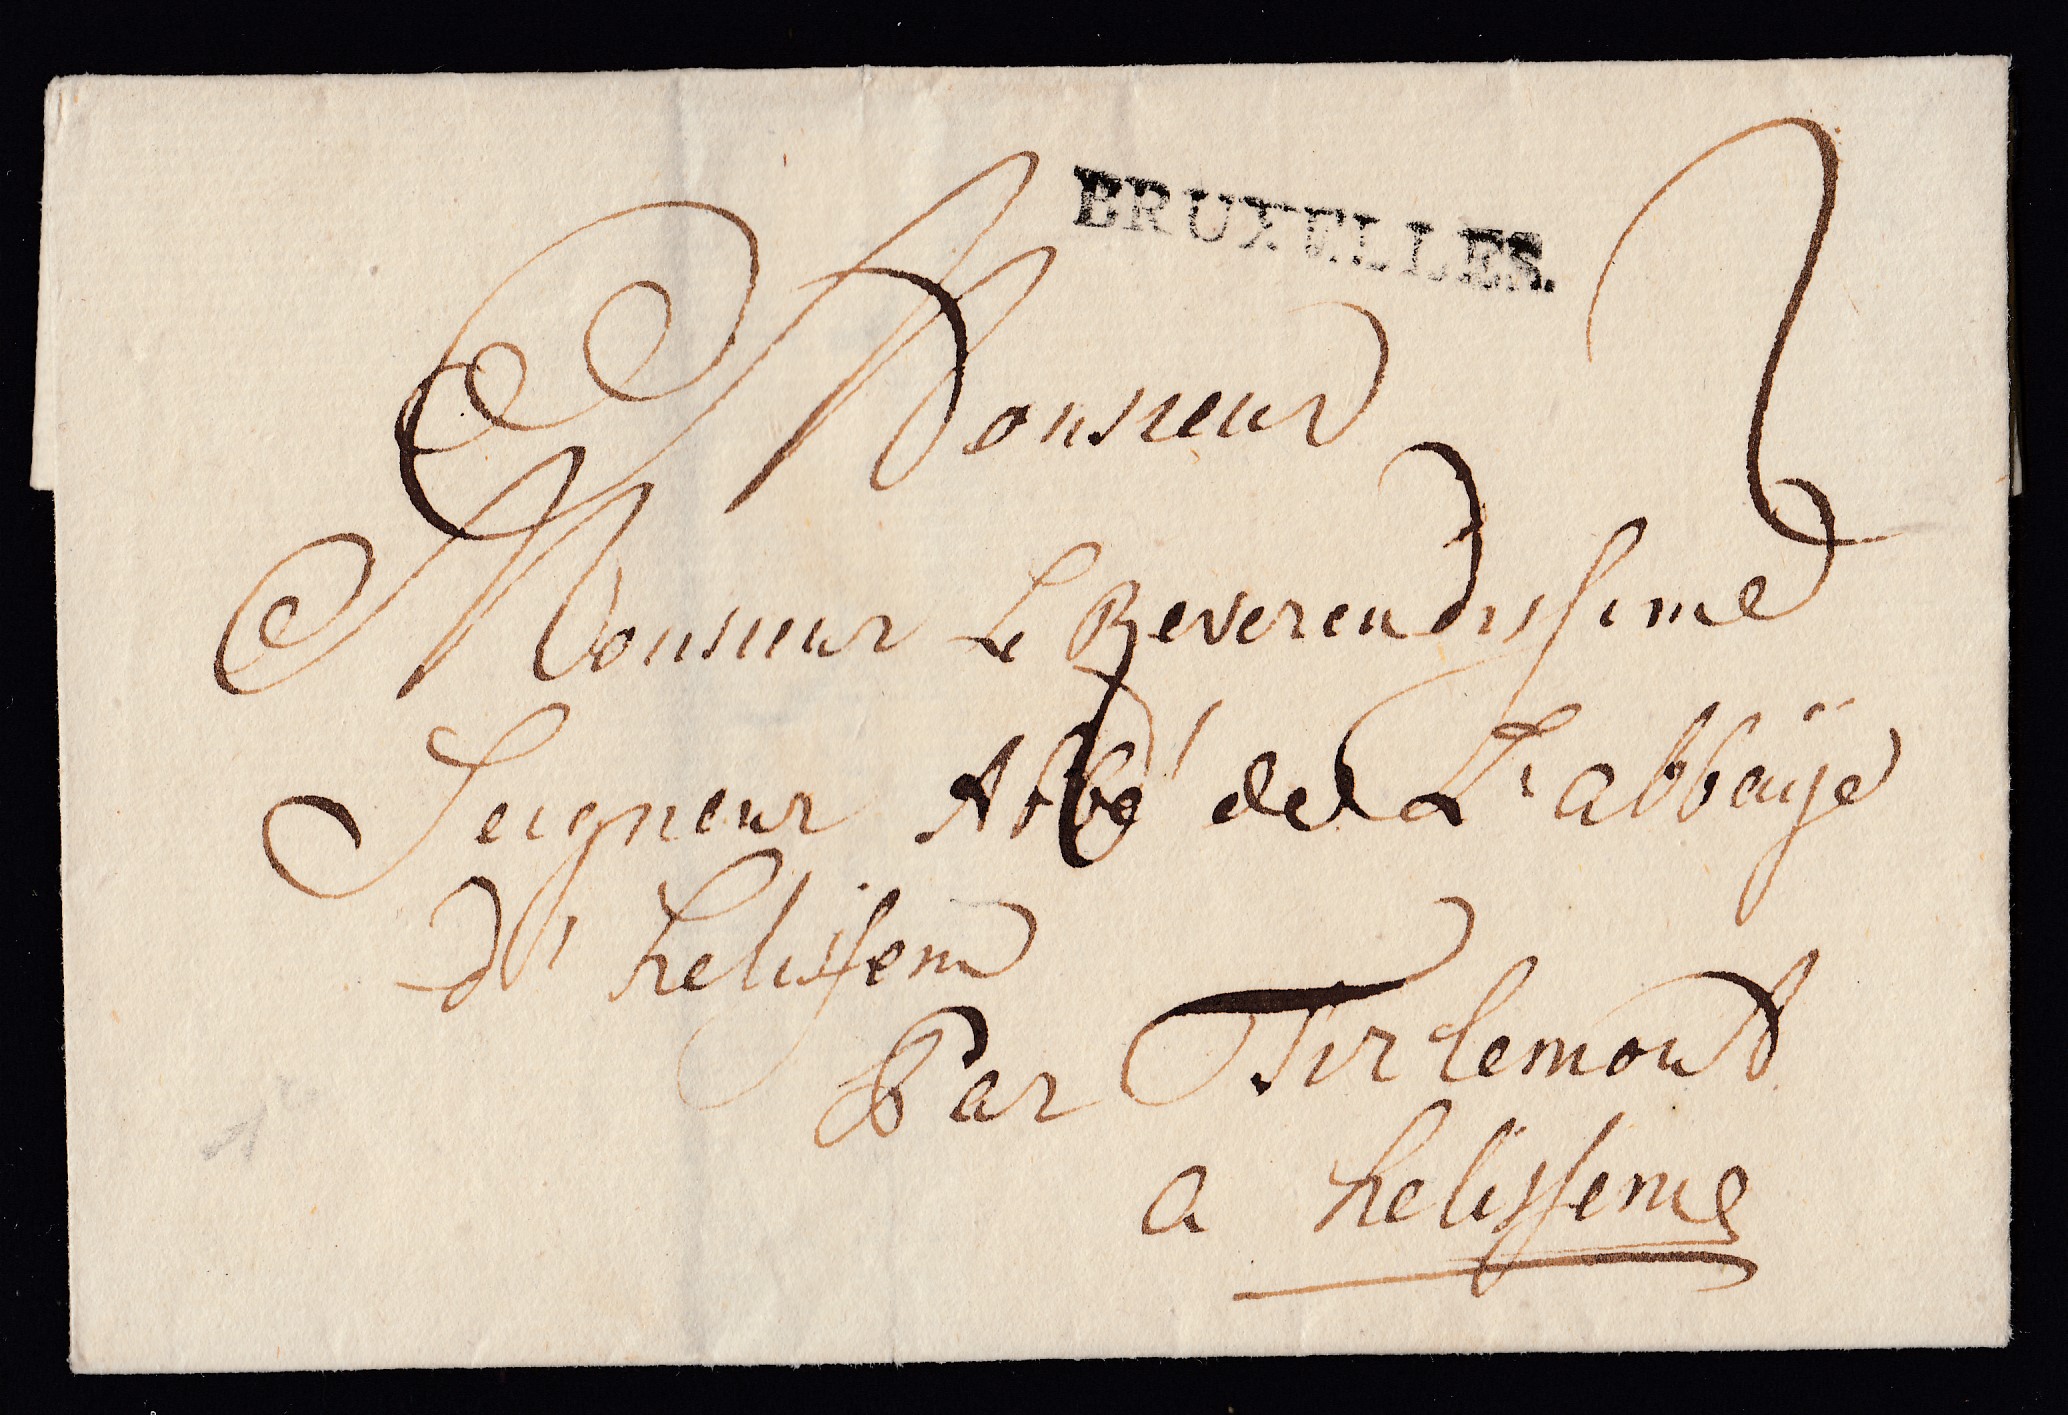 BRUXELLES.
2
Monsieur
Monsieur Le Reverendissime
Seigneur Abbé de L'abbaÿe
d'helissem
Par Tirlemont
a helisseme